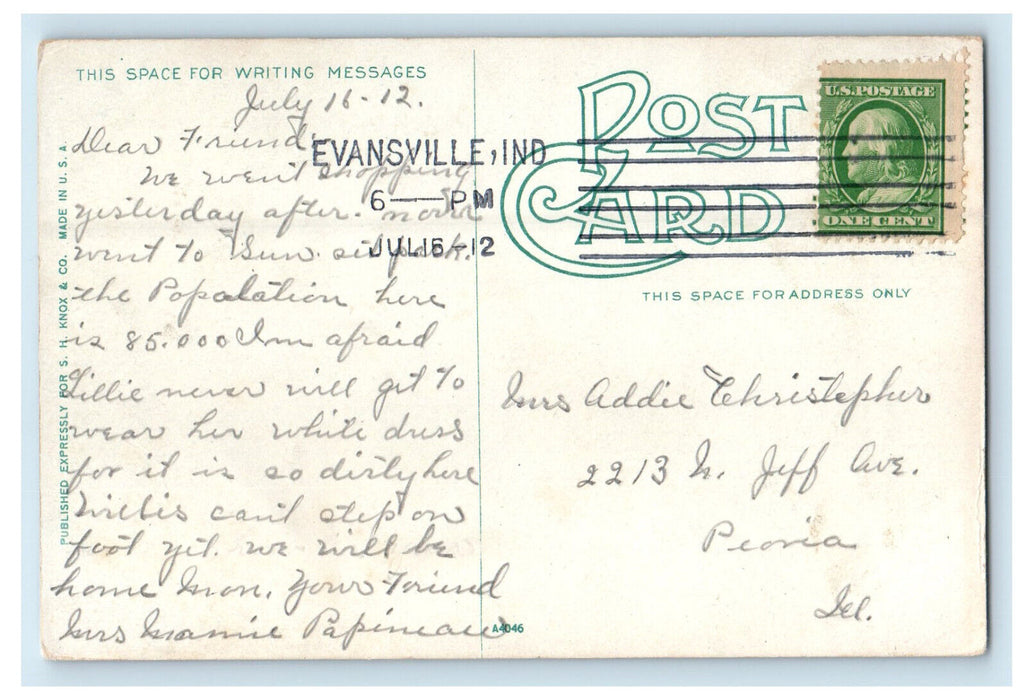 THIS SPACE FOR WRITING MESSAGES
July 16-12.
Dear Friend
We went shopping
yesterday after. noon
went to Sun. set park.
the Popolation here
is 85.000 I'm afraid
Lillie never will get to
wear her white dress
for it is so dirty here
Willis can't step on
foot yet. we will be
home Mon. Your Friend
Mrs Mamie Papineau
PUBLISHED EXPRESSLY FOR S. H. KNOX & CO. MADE IN U.S.A.
EVANSVILLE, IND
6—PM
JUL16-12
POST CARD
U.S. POSTAGE
ONE CENT
THIS SPACE FOR ADDRESS ONLY
Mrs Addie Christepher
2213 N. Jeff Ave.
Peoria
Ill.
A4046